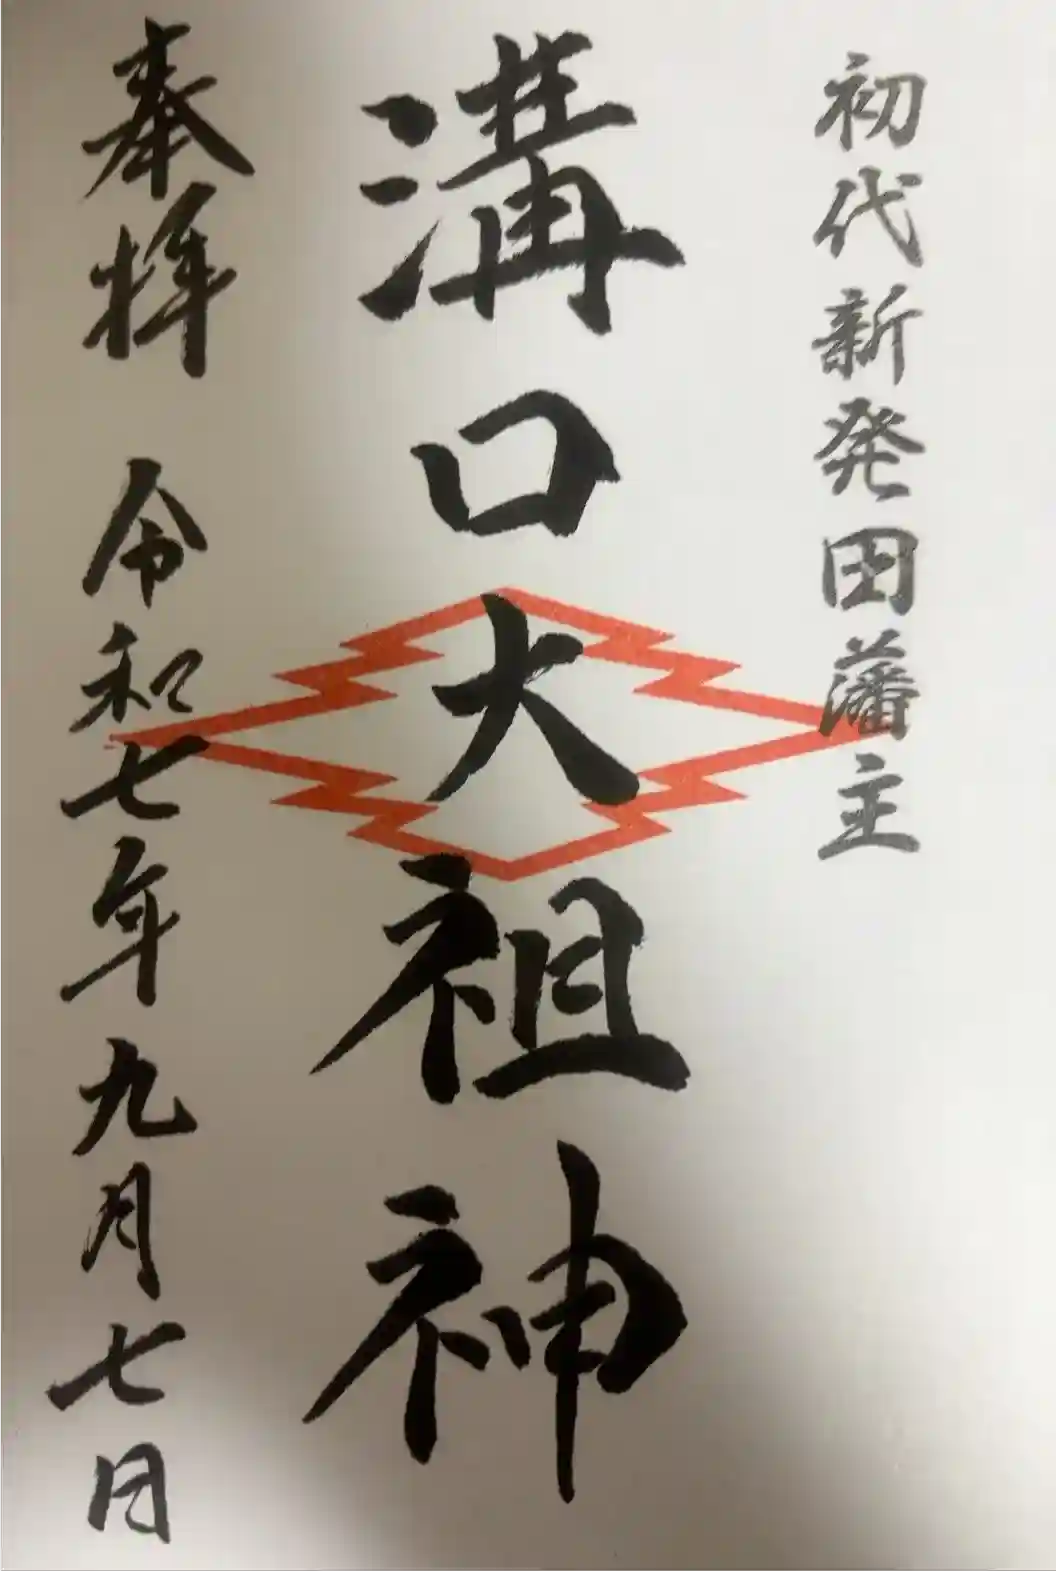 初代新発田藩主
溝口大祖神
奉拝 令和七年九月七日